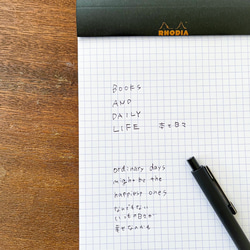 RHODIA
BOOKS
AND
DAILY
LIFE 本と日々
ordinary days
might be the
happiest ones
なにげない
いつもの日々が
幸せなんかも